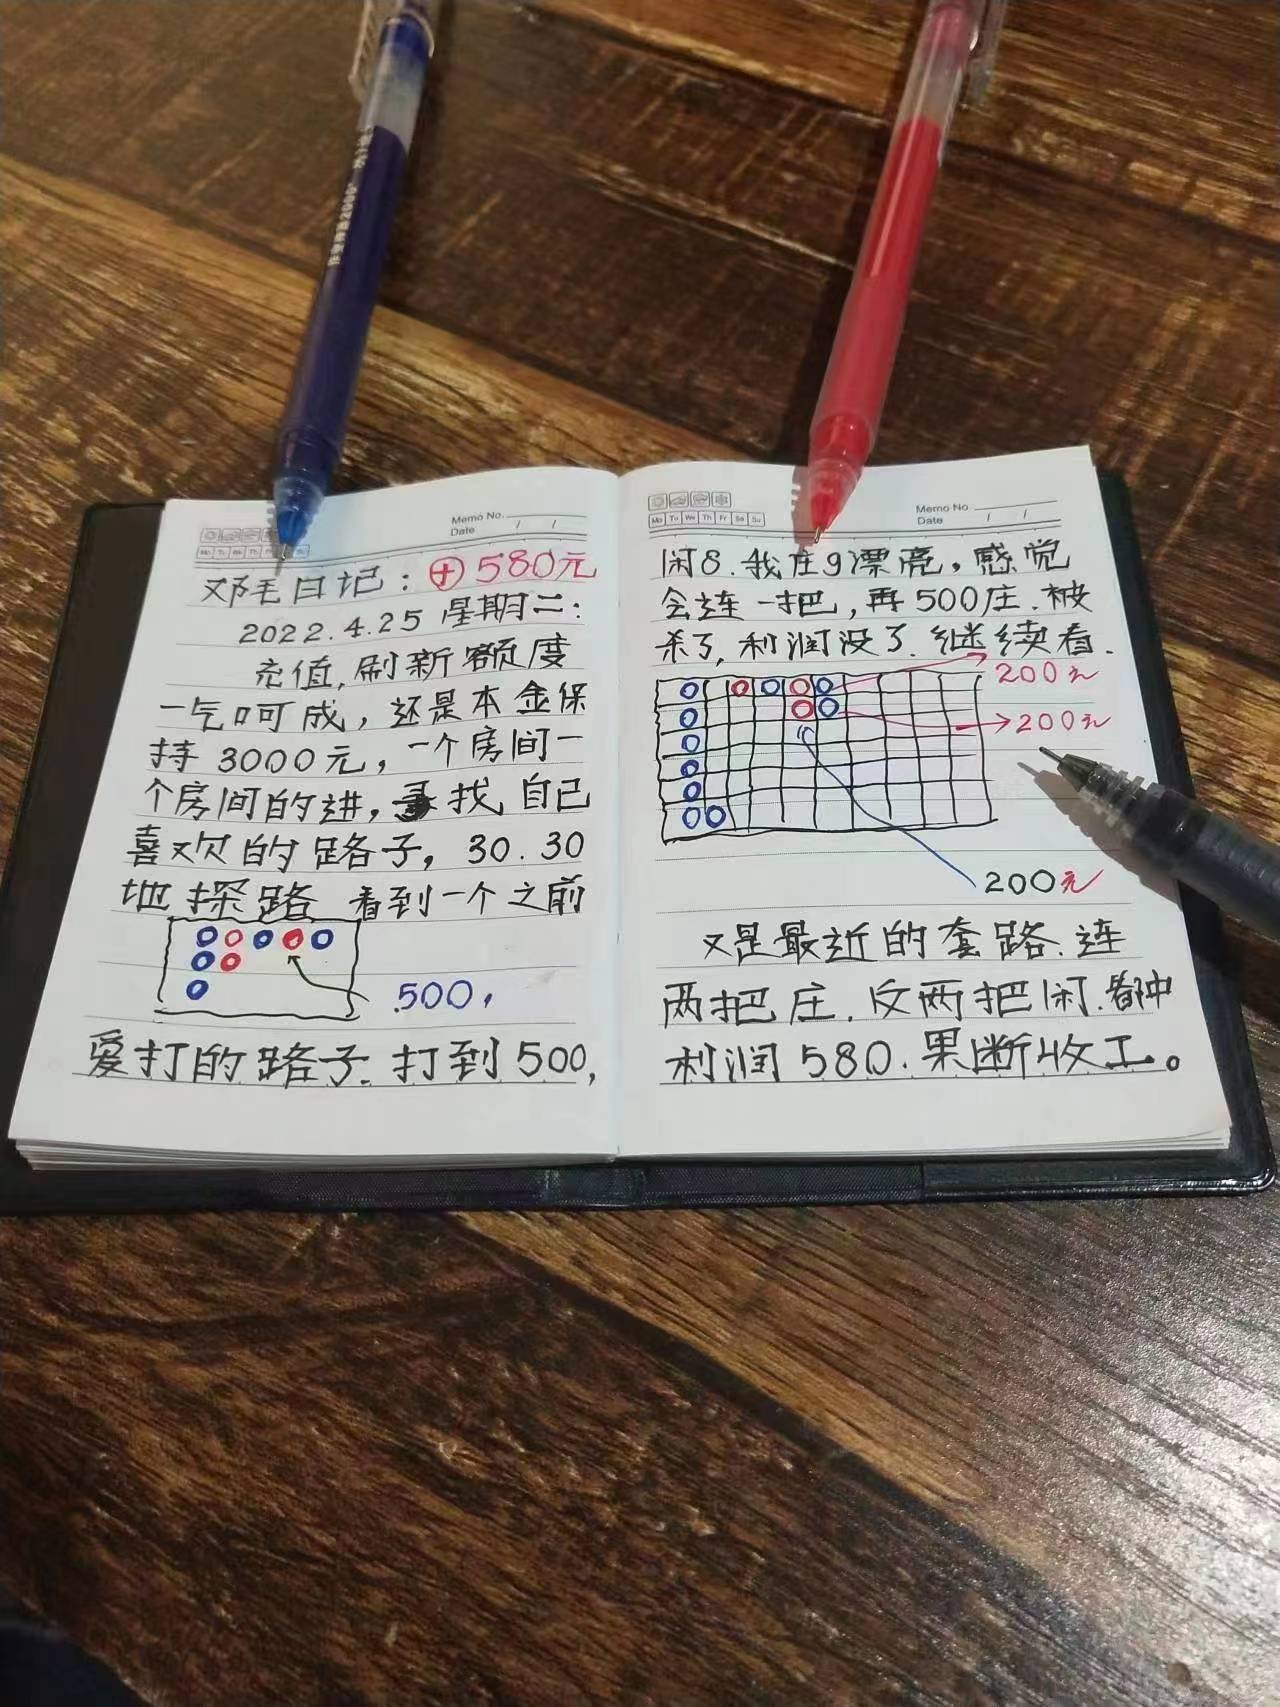 Memo No.
Date / /
Mo Tu We Th Fr Sa Su
邓毛日记：⊕580元
2022.4.25 星期二：
充值，刷新额度
一气呵成，还是本金保
持3000元，一个房间一
个房间的进，寻找自己
喜欢的路子，30.30
地探路 看到一个之前
500，
爱打的路子.打到500,
Memo No.
Date / /
Mo Tu We Th Fr Sa Su
闲8.我庄9漂亮，感觉
会连一把，再500庄.被
杀了，利润没了.继续看.
200元
200元
200元
又是最近的套路.连
两把庄.反两把闲.都中
利润580.果断收工。